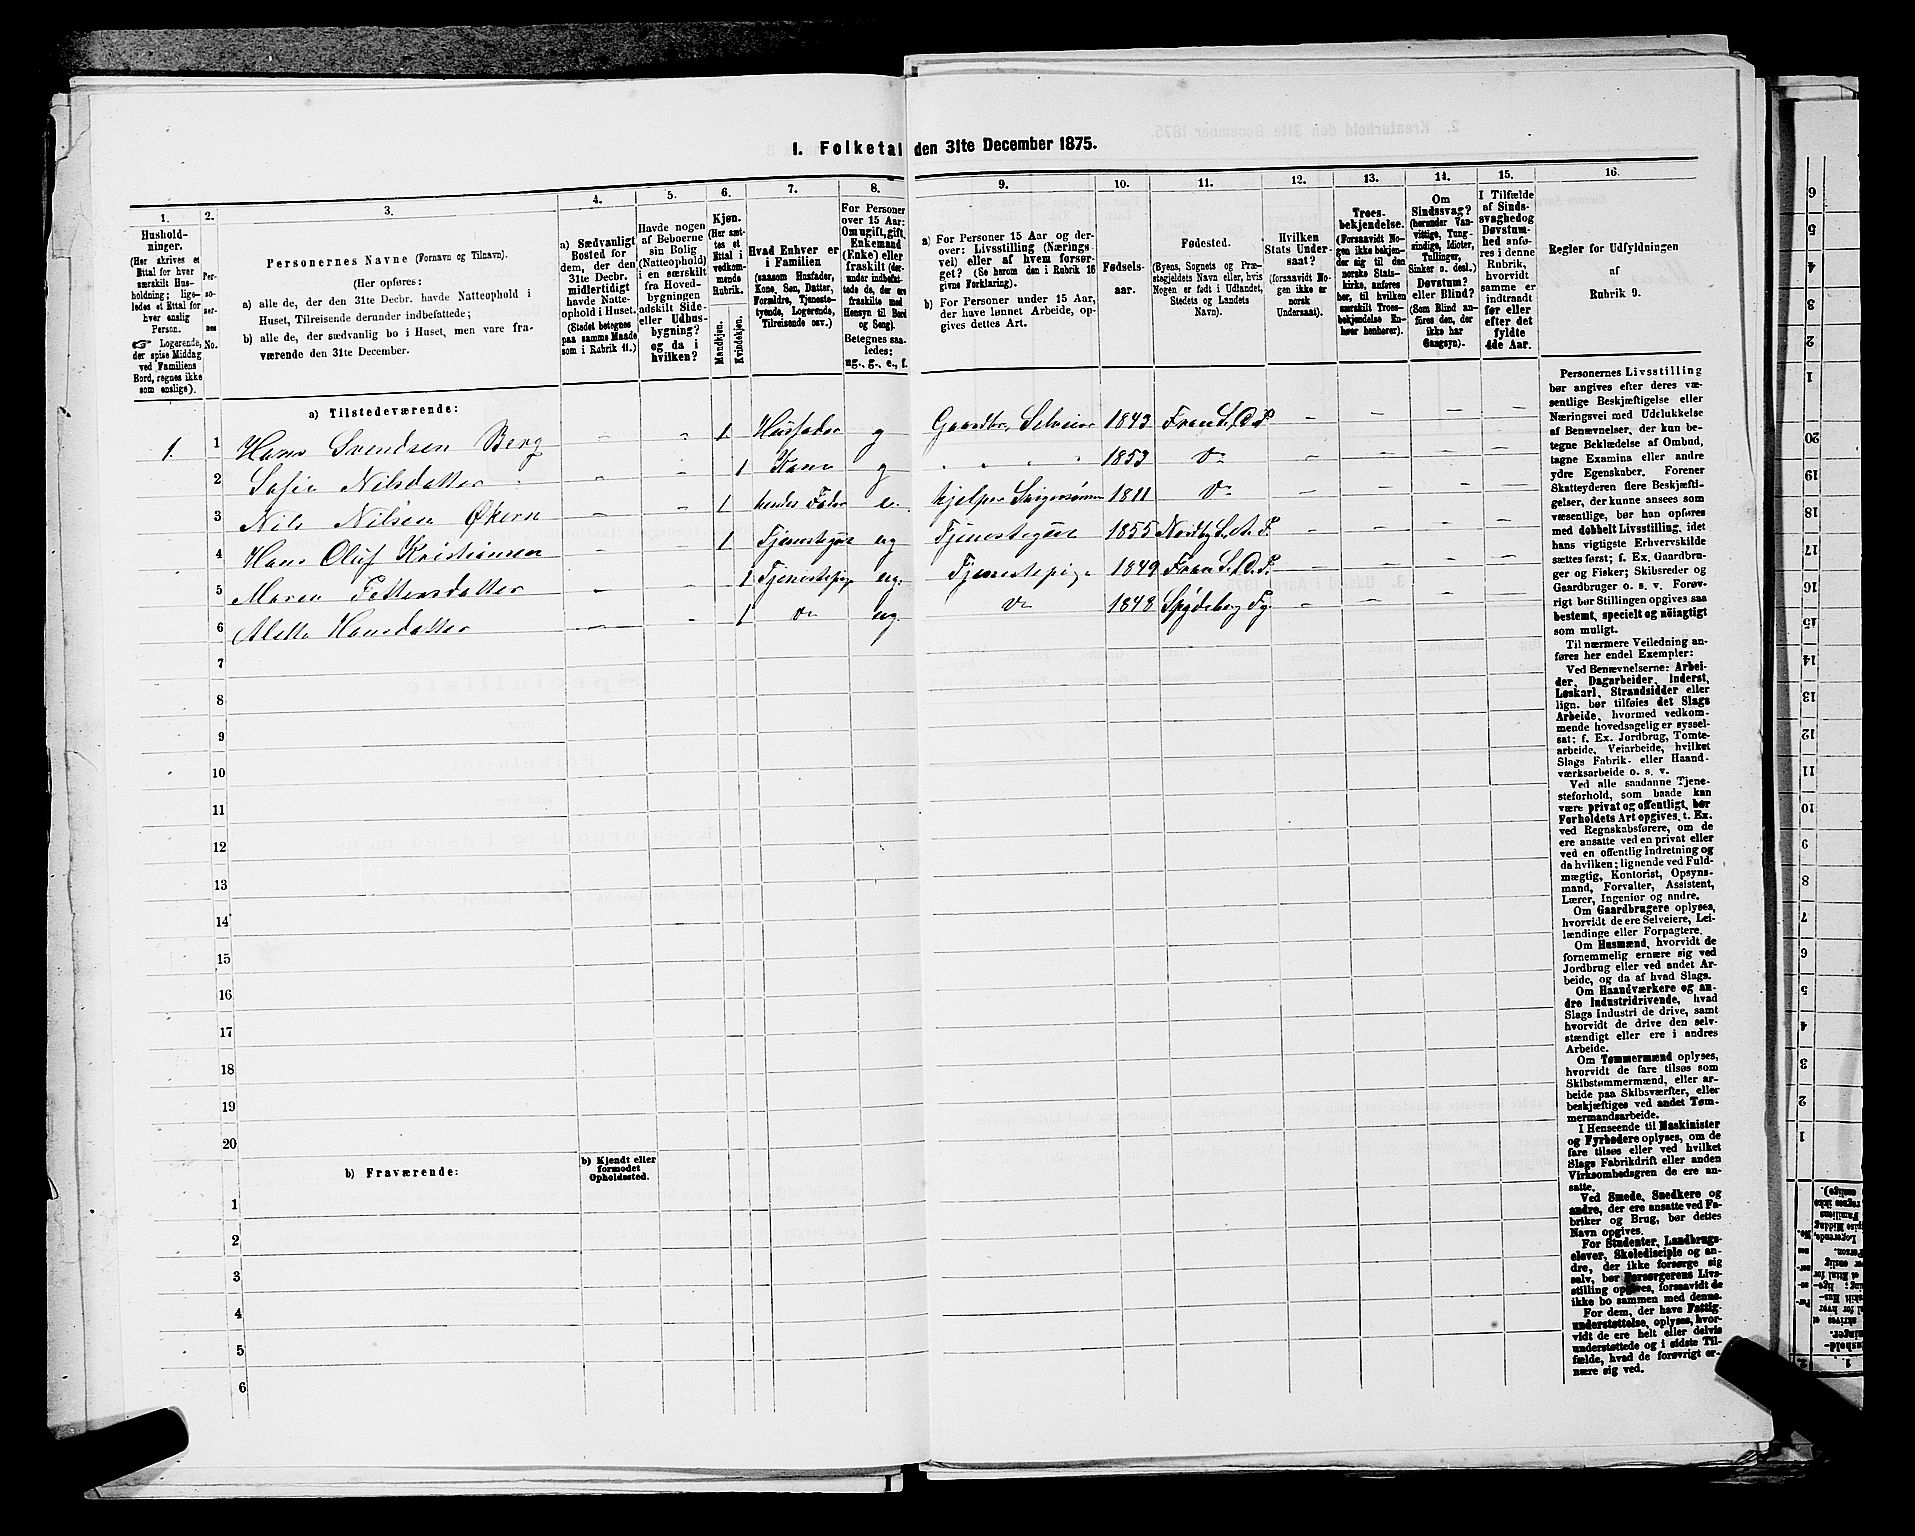 1. Folketal den 31te December 1875.
1.
Husholdninger.
(Her skrives et
Ettal for hver
særskilt Husholdning;
ligeledes et Ettal for
hver enslig
Person.
☞ Logerende,
der spise Middag
ved Familiens
Bord, regnes ikke
som enslige).
2.
Personernes
No.
3.
Personernes Navne (Fornavn og Tilnavn).
(Her opføres:
a) alle de, der den 31te Decbr. havde Natteophold i
Huset, Tilreisende derunder indbefattede;
b) alle de, der sædvanlig bo i Huset, men vare fraværende
den 31te December.
4.
a) Sædvanligt
Bosted for
dem, der den
31te Decbr.
midlertidigt
havde Natteophold
i Huset.
(Stedet betegnes
paa samme Maade
som i Rubrik 11.)
5.
Havde nogen
af Beboerne
sin Bolig
(Natteophold)
i en særskilt
fra Hovedbygningen
adskilt Side-
eller Udhusbygning?
og da i
hvilken?
6.
Kjøn.
(Her sættes
et
Ettal i
vedkommende
Rubrik.
Mandkjøn.
Kvindekjøn.
7.
Hvad Enhver er
i Familien
(saasom Husfader,
Kone, Søn, Datter,
Forældre, Tjenestetyende,
Logerende,
Tilreisende osv.)
8.
For Personer
over 15 Aar:
Om ugift, gift,
Enkemand
(Enke) eller
fraskilt
Betegnes saaledes:
ug., g., e., f.
9.
a) For Personer 15 Aar og derover:
Livsstilling (Næringsvei)
eller af hvem forsørget?
(Se herom den i Rubrik 16
givne Forklaring).
b) For Personer under 15 Aar,
der have lønnet Arbeide, opgives
dettes Art.
10.
Fødselsaar.
11.
Fødested.
(Byens, Sognets og Præstegjeldets
Navn eller, hvis
Nogen er født i Udlandet,
Stedets og Landets
Navn).
12.
Hvilken
Stats Undersaat?
(forsaavidt Nogen
ikke er
norsk
Undersaat).
13.
Troesbekjendelse.
(Forsaavidt Nogen
ikke bekjender
sig til den
norske Statskirke,
anføres
her, til hvilken
særskilt Troesbekjendelse
Enhver
henhører).
14.
Om
Sindssvag?
(herunder Vanvittige,
Tungsindige,
Idioter,
Tullinger,
Sinker o. desl.)
Døvstum?
eller Blind?
(Som Blind anføres
den, der
ikke har
Gangsyn).
15.
I Tilfælde
af Sindssvaghed
og
Døvstumhed
anføres
i denne
Rubrik,
hvorvidt
samme er
indtraadt
før eller
efter det
fyldte
4de Aar.
16.
Regler for Udfyldningen
af
Rubrik 9.
a) Tilstedeværende:
1. 1 Hans Svendsen Berg - - 1 Husfader g Gaardbr. Selveier 1843 Fron S. D. P. - - - -
2 Sofie Nilsdatter - - 1 Kone g " " " 1853 Do - - - -
3 Nils Nilsen Økern - - 1 hendes Fader e. hjelper Svigersønnen 1811 Do - - - -
4 Hans Oluf Kristiansen - - 1 Tjenestegut ug Tjenestegut 1855 Nordby S. A. P. - - - -
5 Maren Pettersdatter - - 1 Tjenestepig ug. Tjenestepige 1849 Fron S. D. P. - - - -
6 Alette Hansdatter - - 1 Do ug. Do 1848 Spydeberg Pg. - - - -
7
8
9
10
11
12
13
14
15
16
17
18
19
20
b) Fraværende:
b) Kjendt eller
formodet
Opholdssted.
1
2
3
4
5
6
Personernes Livsstilling
bør angives efter deres væsentlige
Beskjæftigelse eller
Næringsvei med Udelukkelse
af Benævnelser, der kun betegne
Beklædelse af Ombud,
tagne Examina eller andre
ydre Egenskaber. Forener
Skatteyderen flere Beskjæftigelser,
der kunne ansees som
væsentlige, bør han opføres
med dobbelt Livsstilling, idet
hans vigtigste Erhvervskilde
sættes først; f. Ex. Gaardbruger
og Fisker; Skibsreder og
Gaardbruger o. s. v. Forøvrigt
bør Stillingen opgives saa
bestemt, specielt og nöiagtigt
som muligt.
Til nærmere Veiledning anføres
her endel Exempler:
Ved Benævnelserne: Arbeider,
Dagarbeider, Inderst,
Løskarl, Strandsidder eller
lign. bør tilføies det Slags
Arbeide, hvormed vedkommende
hovedsagelig er sysselsat;
f. Ex. Jordbrug, Tomtearbeide,
Veiarbeide, hvilket
Slags Fabrik- eller Haandværksarbeide
o. s. v.
Ved alle saadanne Tjenesteforhold,
som baade kan
være privat og offentligt, bør
Forholdets Art opgives, t. Ex.
ved Regnskabsførere, om de
ere ansatte ved en privat eller
ved en offentlig Indretning og
da hvilken; lignende ved Fuldmægtig,
Kontorist, Opsynsmand,
Forvalter, Assistent,
Lærer, Ingeniør og andre.
Om Gaardbrugere oplyses,
hvorvidt de ere Selveiere, Leilændinge
eller Forpagtere.
Om Husmænd, hvorvidt de
fornemmelig ernære sig ved
Jordbrug eller ved andet Arbeide,
og da af hvad Slags.
Om Haandværkere og andre
Industridrivende, hvad
Slags Industri de drive, samt
hvorvidt de drive den selvstændigt
eller ere i andres
Arbeide.
Om Tømmermænd oplyses,
hvorvidt de fare tilsøs som
Skibstømmermænd, eller arbeide
paa Skibsværfter, eller
beskjæftiges ved andet Tømmermandsarbeide.
I Henseende til Maskinister
og Fyrbødere oplyses, om de
fare tilsøs eller ved hvilket
Slags Fabrikdrift eller anden
Virksomhedsgren de ere ansatte.
Ved Smede, Snedkere og
andre, der ere ansatte ved Fabriker
og Brug, bør dettes
Navn opgives.
For Studenter, Landbrugselever,
Skoledisciple og andre,
der ikke forsørge sig
selv, bør Forsørgerens Livsstilling
opgives, forsaavidt de
ikke bo sammen med denne.
For dem, der have Fattigunderstøttelse,
oplyses, hvorvidt
de ere helt eller delvis
understøttede og i sidste Tilfælde,
hvad de forøvrigt ernære
sig ved.